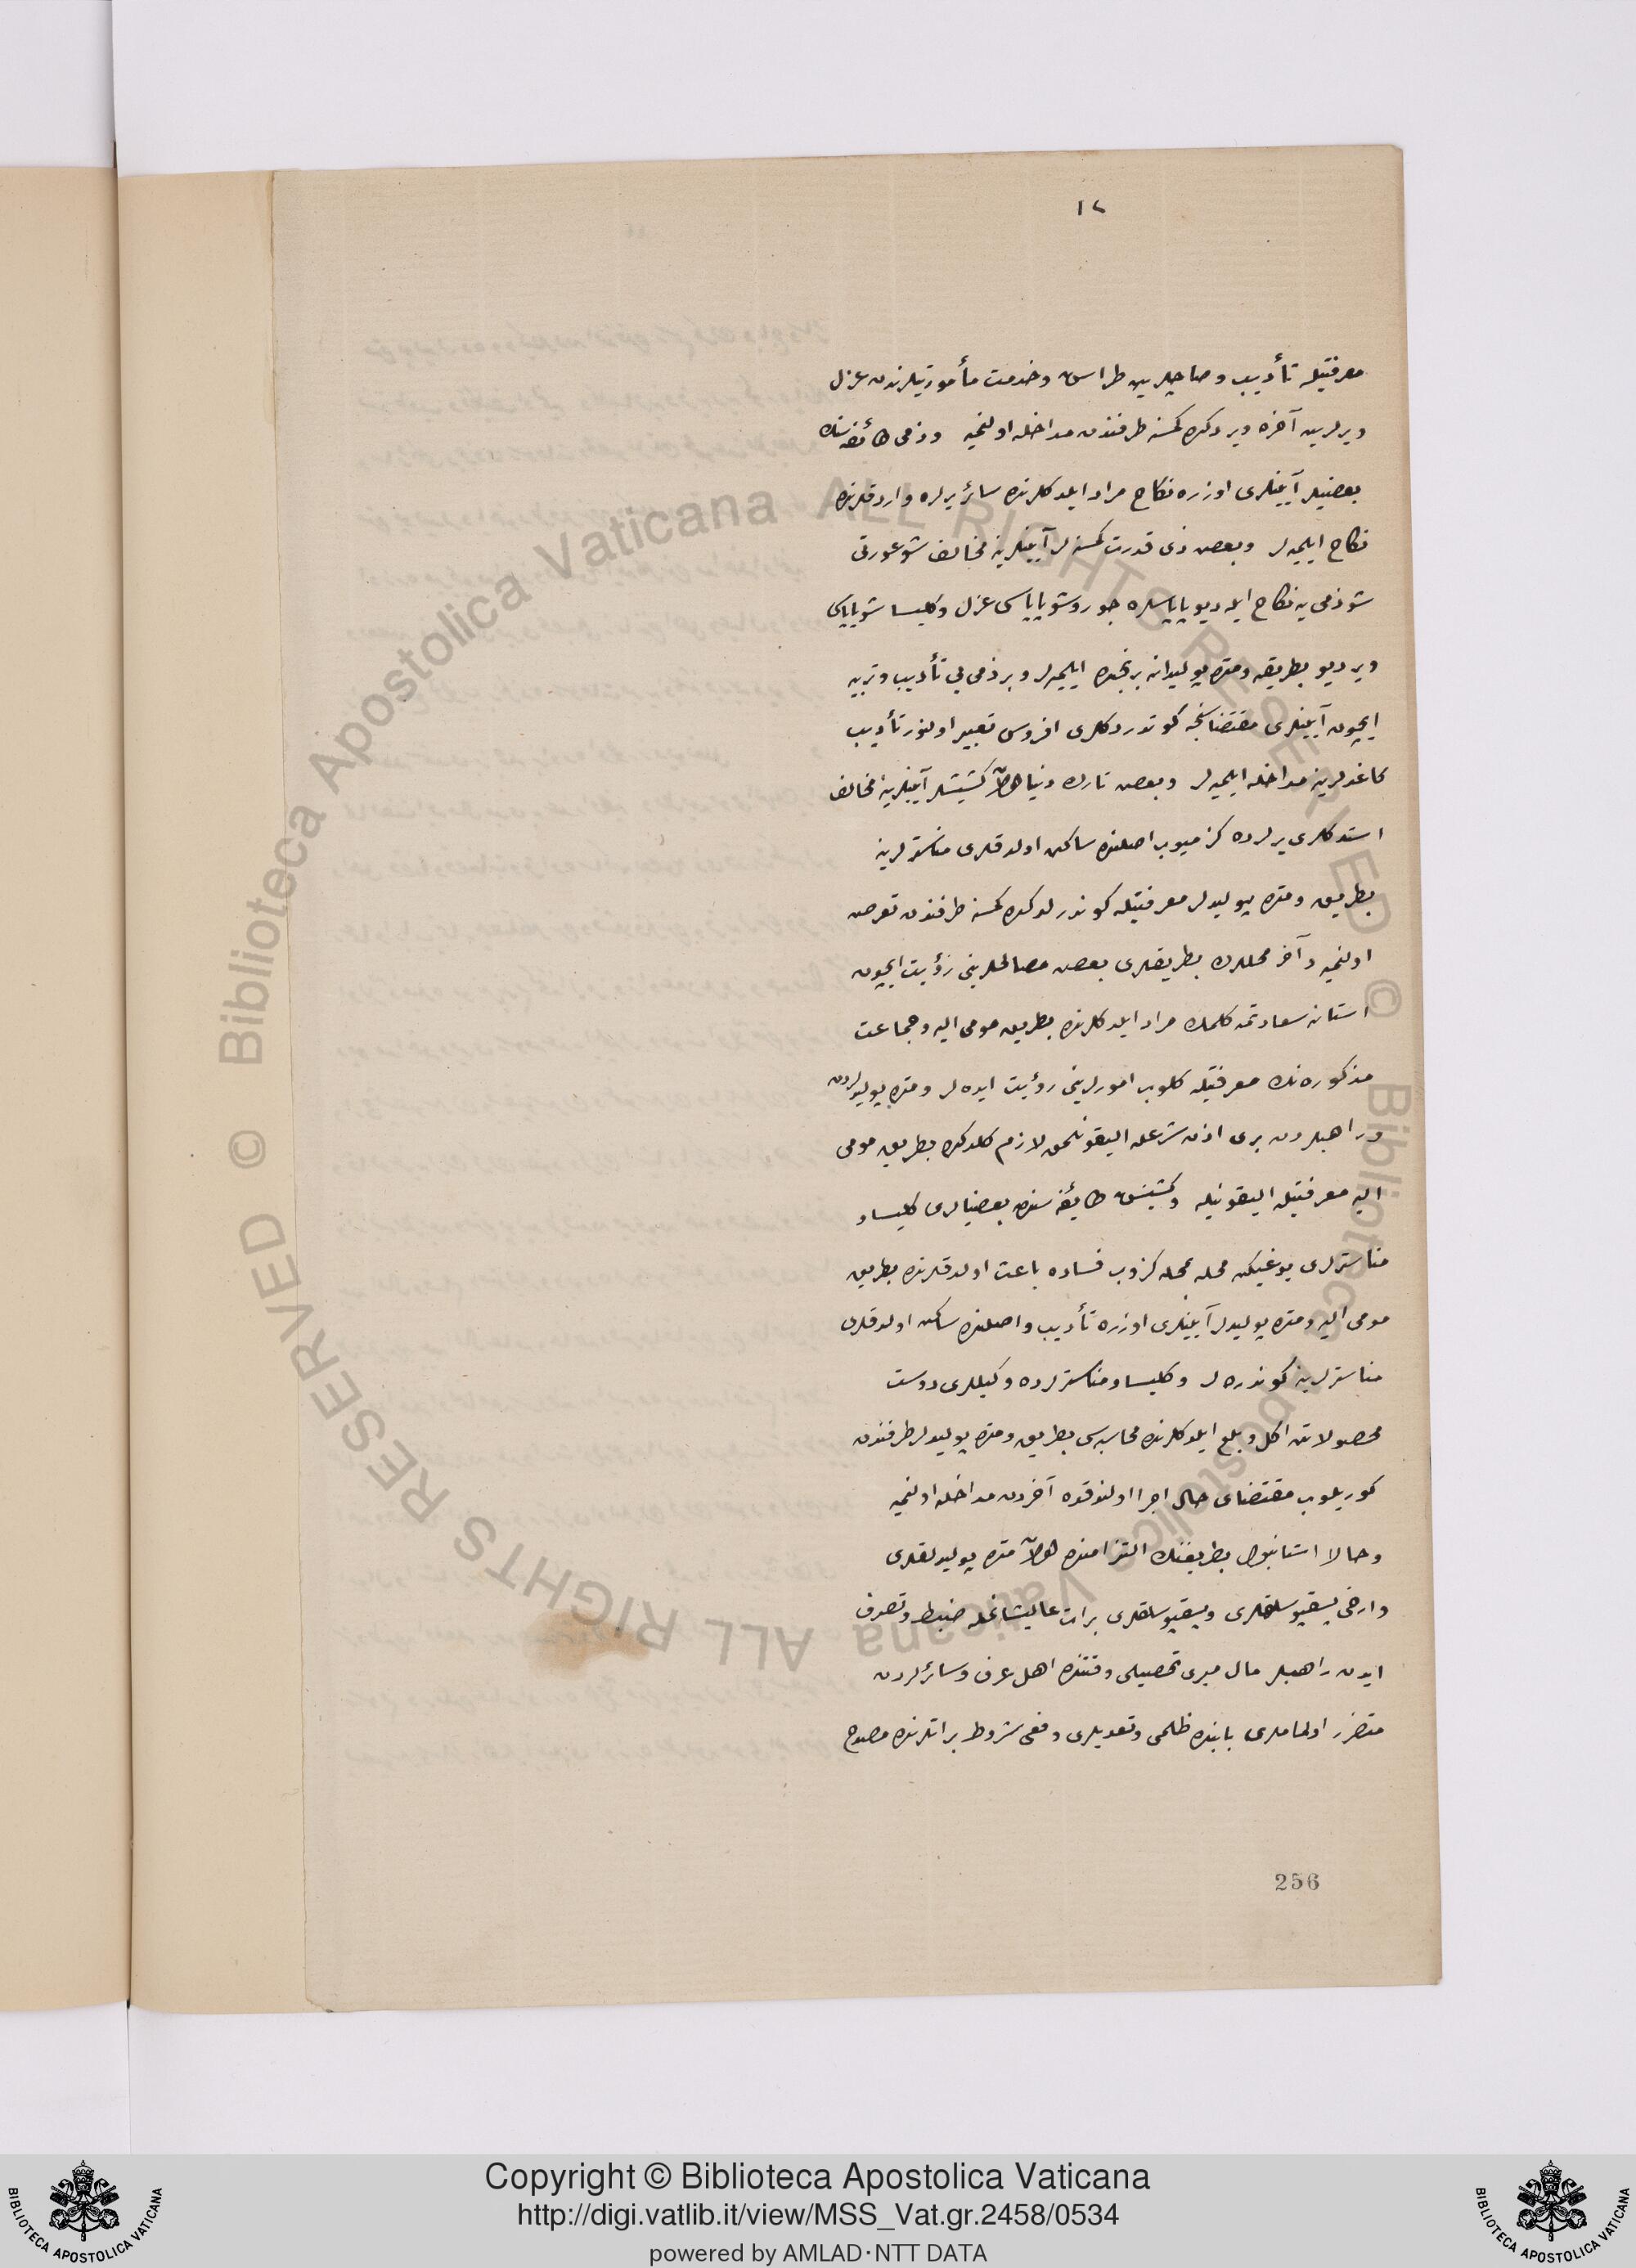 ١٢
معرفتيله تأديب و صاچلرين طراش و خدمت مأموريتلرندن عزل
و يرلرين آخره ويردكده كمسنه طرفندن مداخله اولنميه و ذمى طائفه سنك
بعضيلر آيينلرى اوزره نكاح مراد ايلدكلرنده سائر يرلره واردقلرنده
نكاح ايلميه لر و بعض ذى قدرت كمسنه لر آيينلرينه مخالف شو عورتى
شو ذمى يه نكاح ايله ديو پاپاسلره جور و شو پاپاسى عزل و كليسا شو پاپاسى
وير ديو بطريقه و متره پوليدانه رنجيده ايلميه لر و بر ذمى يى تأديب و تربيه
ايچون آيينلرى مقتضاسنجه كوندردكلرى افروس تعبير اولنور تأديب
كاغدلرينه مداخله ايلميه لر و بعض تارك دنيا كشيشلر آيينلرينه مخالف
استدكلرى يرلرده كزميوب اصلنده ساكن اولدقلرى مناسترلرينه
بطريق و متره پوليدلر معرفتيله كوندرلدكده كمسنه طرفندن تعرض
اولنميه و آخر محللرك بطريقلرى بعض مصالحلرينى رؤيت ايچون
استانه سعادتمه كلمك مراد ايلدكلرنده بطريق مومى اليه و جماعت
مذكوره نك معرفتيله كلوب امورلرينى رؤيت ايده لر و متره پوليدلردن
و راهبلردن برى اذن شرعله اليقونلمق لازم كلدكده بطريق مومى
اليه معرفتيله اليقونيله و كشيش طائفه سنده بعضيلرى كليسا و
مناسترلرى يوغيكن محله بمحله كزوب فساده باعث اولدقلرنده بطريق
مومى اليه و متره پوليدلر آيينلرى اوزره تأديب و اصلنده ساكن اولدقلرى
مناسترلرينه كوندره لر و كليسا و مناسترلرده وكيللرى دوست
محصولاتن اكل و بلع ايلدكلرنده محاسبه سى بطريق و متره پوليدلر طرفندن
كوريلوب مقتضاى حال اجرا اولندقده آخردن مداخله اولنميه
و حالا استانبول بطريقنك التزامنده متره پوليدلقلرى
و ارخى پسقپوسلقلرى و پسقپوسلقلرى برات عاليشانمله ضبط و تصرف
ايدن راهبلر مال ميرى تحصيلى وقتنده اهل عرف و سائرلردن
متضرر اولمامالرى بابنده ظلمى و تعديلرى دفعى شروط براتلرنده مصرح
256
Copyright © Biblioteca Apostolica Vaticana
http://digi.vatlib.it/view/MSS_Vat.gr.2458/0534
powered by AMLAD·NTT DATA